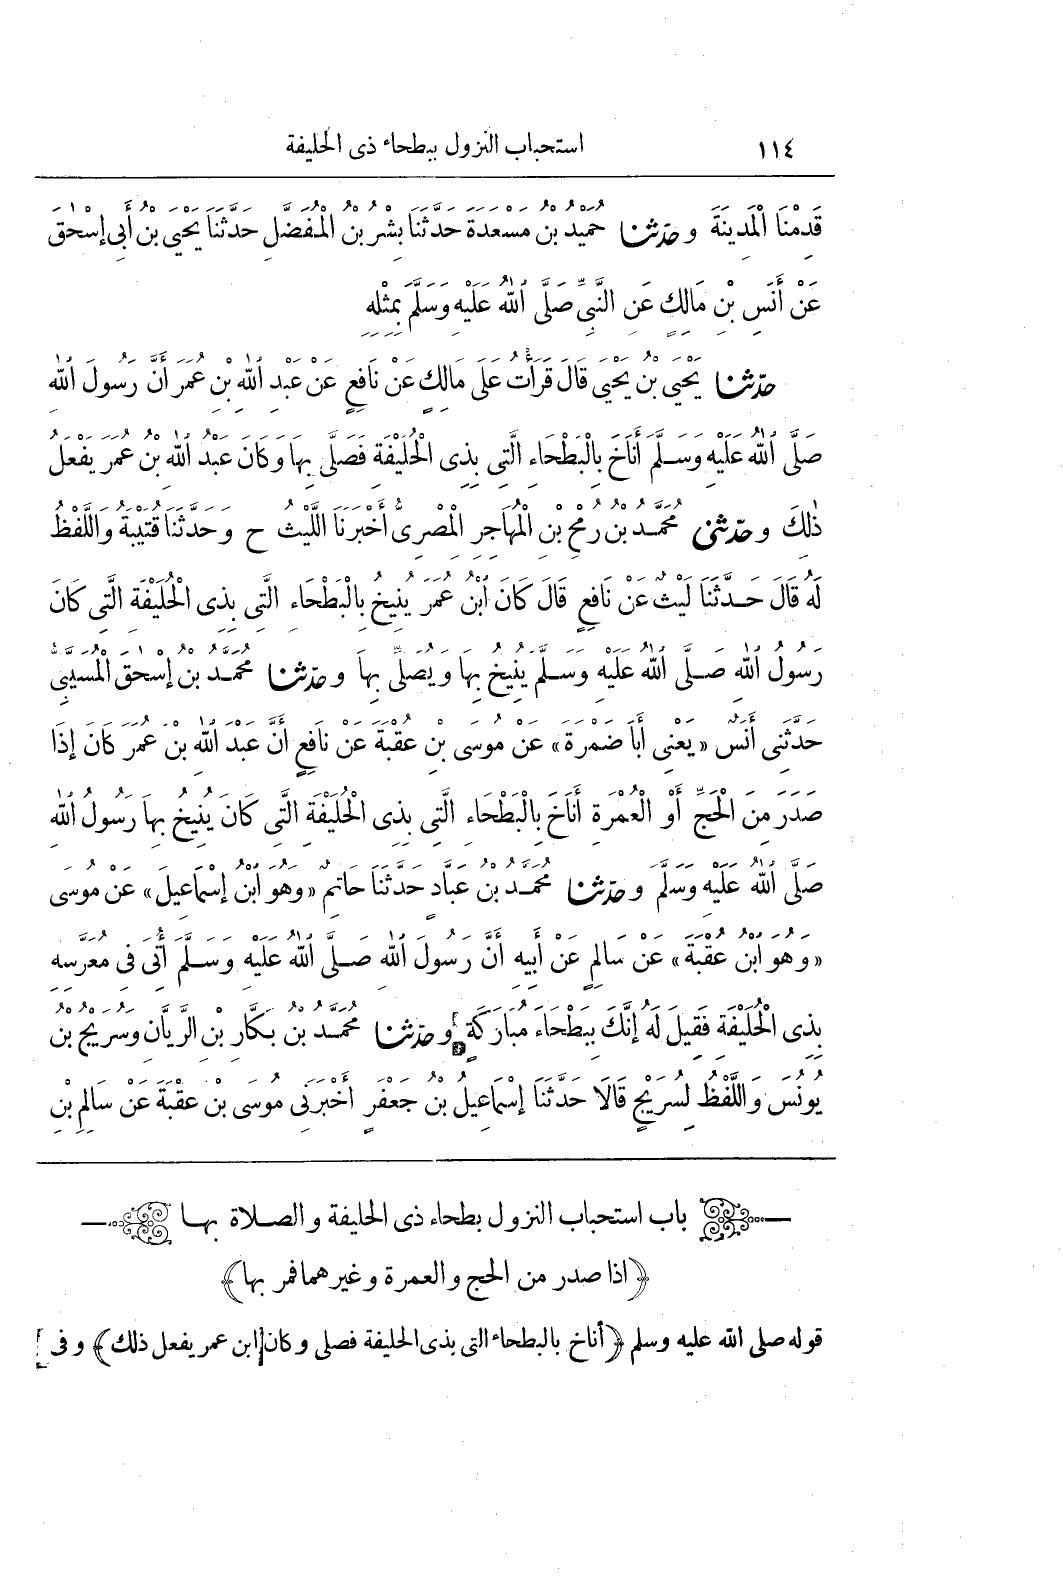 ١١٤ استحباب النزول ببطحاء ذى الحليفة
قَدِمْنَا الْمَدِينَةَ وحدّثنا حُمَيْدُ بْنُ مَسْعَدَةَ حَدَّثَنَا بِشْرُ بْنُ الْمُفَضَّلِ حَدَّثَنَا يَحْيَى بْنُ أَبِى إِسْحٰقَ
عَنْ أَنَسِ بْنِ مَالِكٍ عَنِ النَّبِىِّ صَلَّى اللهُ عَلَيْهِ وَسَلَّمَ بِمِثْلِهِ
حدّثنا يَحْيَى بْنُ يَحْيَى قَالَ قَرَأْتُ عَلَى مَالِكٍ عَنْ نَافِعٍ عَنْ عَبْدِ اللهِ بْنِ عُمَرَ أَنَّ رَسُولَ اللهِ
صَلَّى اللهُ عَلَيْهِ وَسَلَّمَ أَنَاخَ بِالْبَطْحَاءِ الَّتِى بِذِى الْحُلَيْفَةِ فَصَلَّى بِهَا وَكَانَ عَبْدُ اللهِ بْنُ عُمَرَ يَفْعَلُ
ذٰلِكَ وحدّثنى مُحَمَّدُ بْنُ رُمْحِ بْنِ الْمُهَاجِرِ الْمِصْرِىُّ أَخْبَرَنَا اللَّيْثُ ح وَحَدَّثَنَا قُتَيْبَةُ وَاللَّفْظُ
لَهُ قَالَ حَدَّثَنَا لَيْثٌ عَنْ نَافِعٍ قَالَ كَانَ ابْنُ عُمَرَ يُنِيخُ بِالْبَطْحَاءِ الَّتِى بِذِى الْحُلَيْفَةِ الَّتِى كَانَ
رَسُولُ اللهِ صَلَّى اللهُ عَلَيْهِ وَسَلَّمَ يُنِيخُ بِهَا وَيُصَلِّى بِهَا وحدّثنا مُحَمَّدُ بْنُ إِسْحٰقَ الْمُسَيَّبِىُّ
حَدَّثَنِى أَنَسٌ «يَعْنِى أَبَا ضَمْرَةَ» عَنْ مُوسَى بْنِ عُقْبَةَ عَنْ نَافِعٍ أَنَّ عَبْدَ اللهِ بْنَ عُمَرَ كَانَ إِذَا
صَدَرَ مِنَ الْحَجِّ أَوِ الْعُمْرَةِ أَنَاخَ بِالْبَطْحَاءِ الَّتِى بِذِى الْحُلَيْفَةِ الَّتِى كَانَ يُنِيخُ بِهَا رَسُولُ اللهِ
صَلَّى اللهُ عَلَيْهِ وَسَلَّمَ وحدّثنا مُحَمَّدُ بْنُ عَبَّادٍ حَدَّثَنَا حَاتِمٌ «وَهُوَ ابْنُ إِسْمَاعِيلَ» عَنْ مُوسَى
«وَهُوَ ابْنُ عُقْبَةَ» عَنْ سَالِمٍ عَنْ أَبِيهِ أَنَّ رَسُولَ اللهِ صَلَّى اللهُ عَلَيْهِ وَسَلَّمَ أُتِىَ فِى مُعَرَّسِهِ
بِذِى الْحُلَيْفَةِ فَقِيلَ لَهُ إِنَّكَ بِبَطْحَاءَ مُبَارَكَةٍ وحدّثنا مُحَمَّدُ بْنُ بَكَّارِ بْنِ الرَّيَّانِ وَسُرَيْجُ بْنُ
يُونُسَ وَاللَّفْظُ لِسُرَيْجٍ قَالَا حَدَّثَنَا إِسْمَاعِيلُ بْنُ جَعْفَرٍ أَخْبَرَنِى مُوسَى بْنُ عُقْبَةَ عَنْ سَالِمِ بْنِ
باب استحباب النزول بطحاء ذى الحليفة والصلاة بها
﴿اذا صدر من الحج والعمرة وغيرهما فمر بها﴾
قوله صلى الله عليه وسلم ﴿أناخ بالبطحاء التى بذى الحليفة فصلى وكان ابن عمر يفعل ذلك﴾ وفى